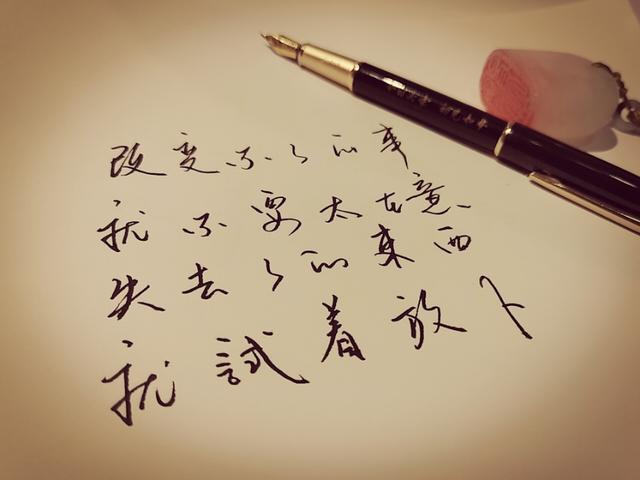 改變不了的事
就不要太在意
失去了的東西
就試着放下